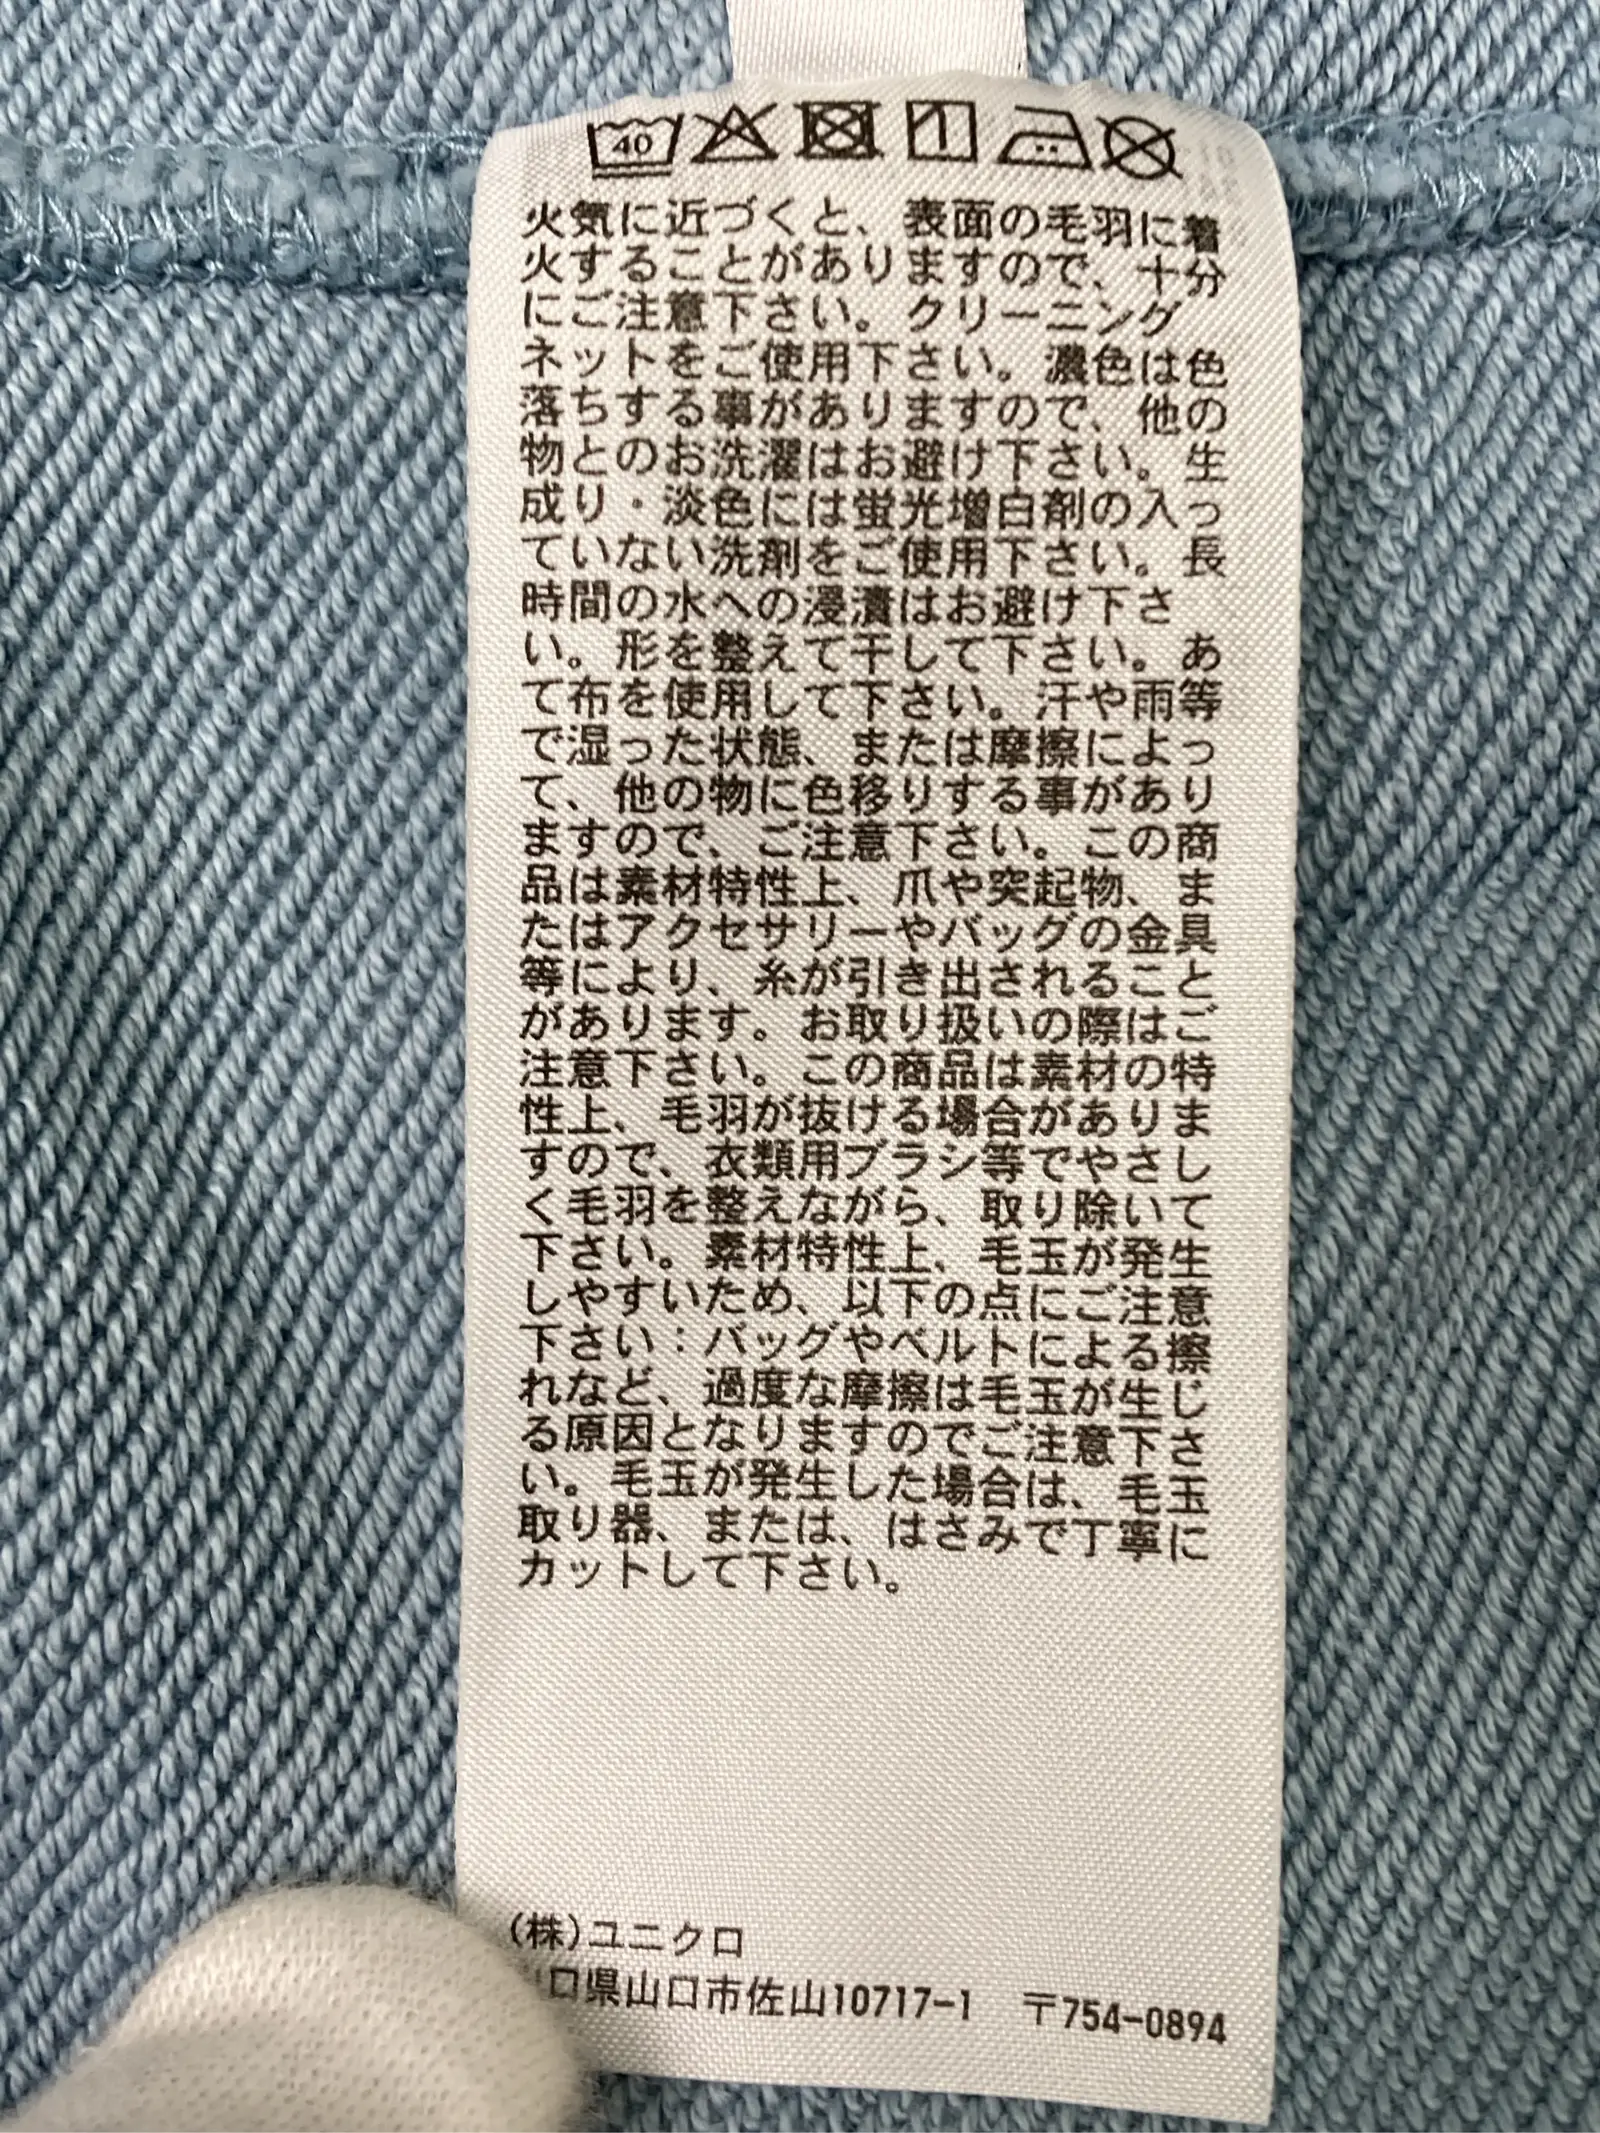 40
火気に近づくと、表面の毛羽に着
火することがありますので、十分
にご注意下さい。クリーニング
ネットをご使用下さい。濃色は色
落ちする事がありますので、他の
物とのお洗濯はお避け下さい。生
成り・淡色には蛍光増白剤の入っ
ていない洗剤をご使用下さい。長
時間の水への浸漬はお避け下さ
い。形を整えて干して下さい。あ
て布を使用して下さい。汗や雨等
で湿った状態、または摩擦によっ
て、他の物に色移りする事があり
ますので、ご注意下さい。この商
品は素材特性上、爪や突起物、ま
たはアクセサリーやバッグの金具
等により、糸が引き出されること
があります。お取り扱いの際はご
注意下さい。この商品は素材の特
性上、毛羽が抜ける場合がありま
すので、衣類用ブラシ等でやさし
く毛羽を整えながら、取り除いて
下さい。素材特性上、毛玉が発生
しやすいため、以下の点にご注意
下さい：バッグやベルトによる擦
れなど、過度な摩擦は毛玉が生じ
る原因となりますのでご注意下さ
い。毛玉が発生した場合は、毛玉
取り器、または、はさみで丁寧に
カットして下さい。
(株)ユニクロ
口県山口市佐山10717-1 〒754-0894